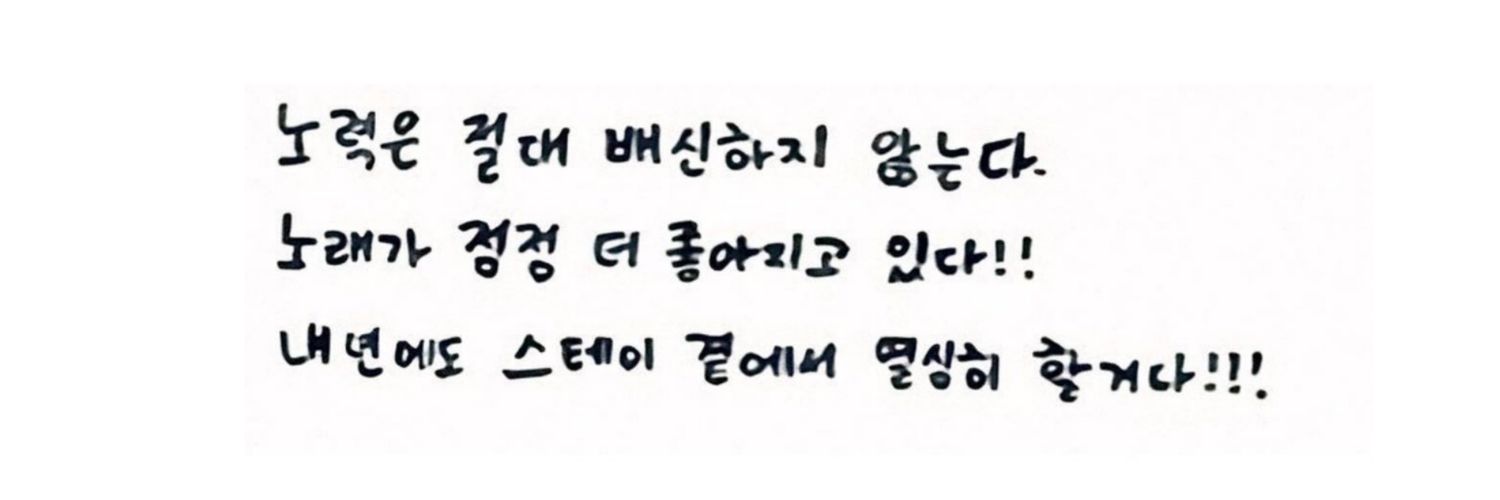 노력은 절대 배신하지 않는다.
노래가 점점 더 좋아지고 있다!!
내년에도 스테이 곁에서 열심히 할거다!!!